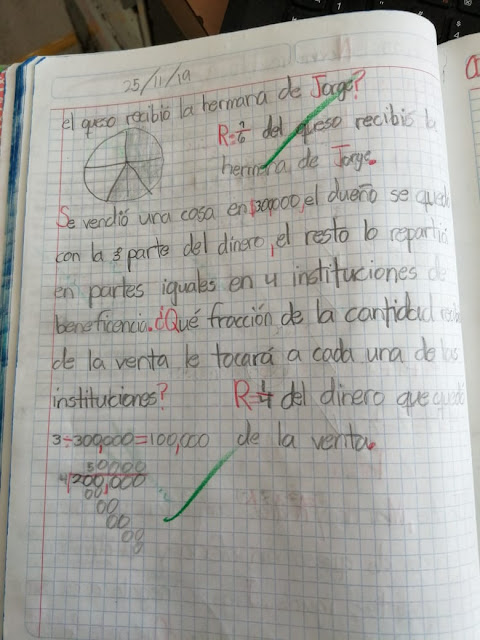 25/11/19
el queso recibió la hermana de Jorge?
R= del queso recibió la
hermana de Jorge.
Se vendió una casa en $300,000, el dueño se quedó
con la parte del dinero, el resto lo repartió
en partes iguales en 4 instituciones de
beneficencia. ¿Qué fracción de la cantidad
de la venta le tocará a cada una de las
instituciones? R=1/4 del dinero que quedó
3÷300,000=100,000 de la venta.
50,000
4 200,000
00
00
00